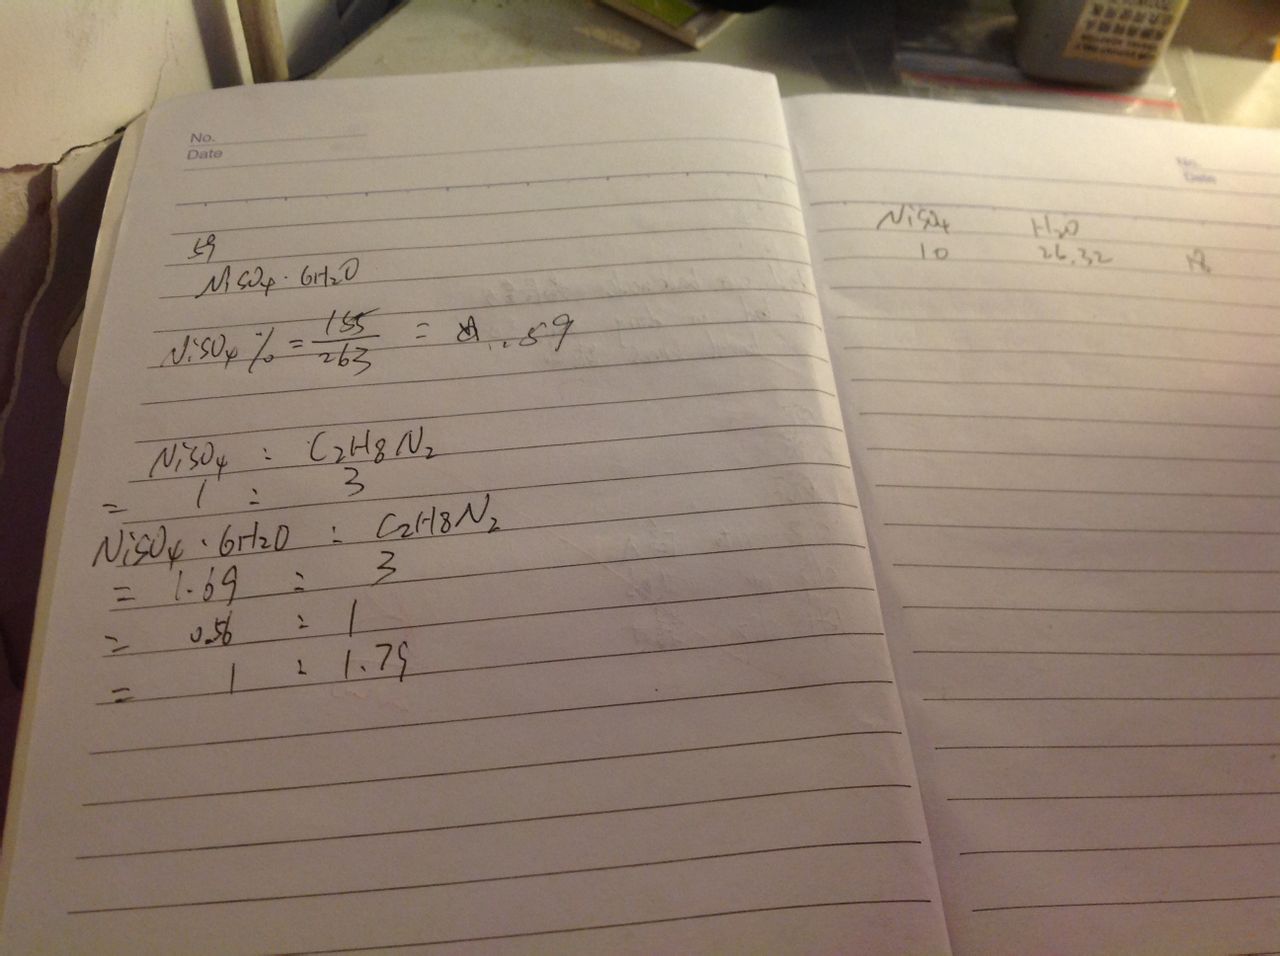 No.
Date
59
NiSO4·6H2O
NiSO4% = 155/263 = .59
NiSO4 : C2H8N2
= 1 : 3
NiSO4·6H2O : C2H8N2
= 1.69 : 3
= 0.56 : 1
= 1 : 1.79
No.
Date
NiSO4 H2O
10 26.32 18